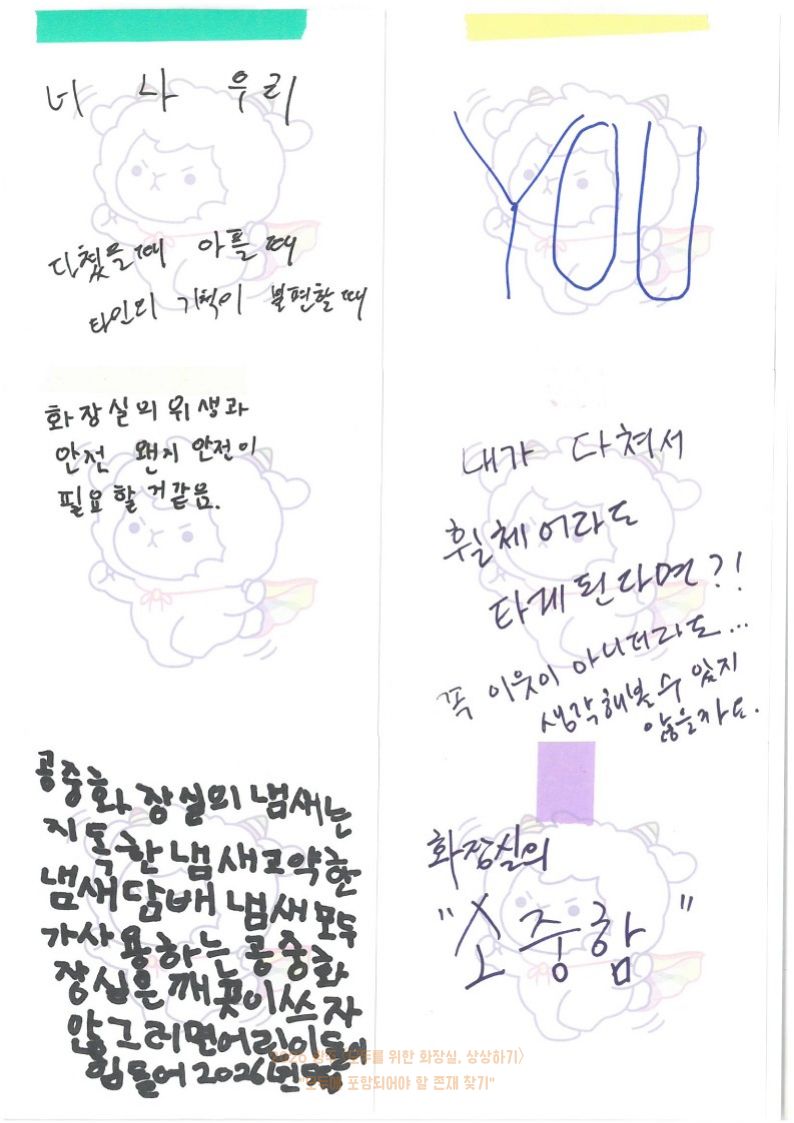 너 나 우리
다쳤을때 아플때
타인의 기척이 불편할때
YOU
화장실의 위생과
안전 왠지 안전이
필요할거같음.
내가 다쳐서
휠체어라도
타게된다면?!
꼭 이웃이 아니더라도...
생각해볼 수 있지
않을까요.
공중화장실의 냄새는
지독한냄새고약한
냄새담배냄새모두
가사용하는공중화
장실은깨끗이쓰자
않그러면어린이들이
힘들어2026년
화장실의
"소중함"
2026 위한 화장실, 상상하기>
포함되어야 할 존재 찾기"